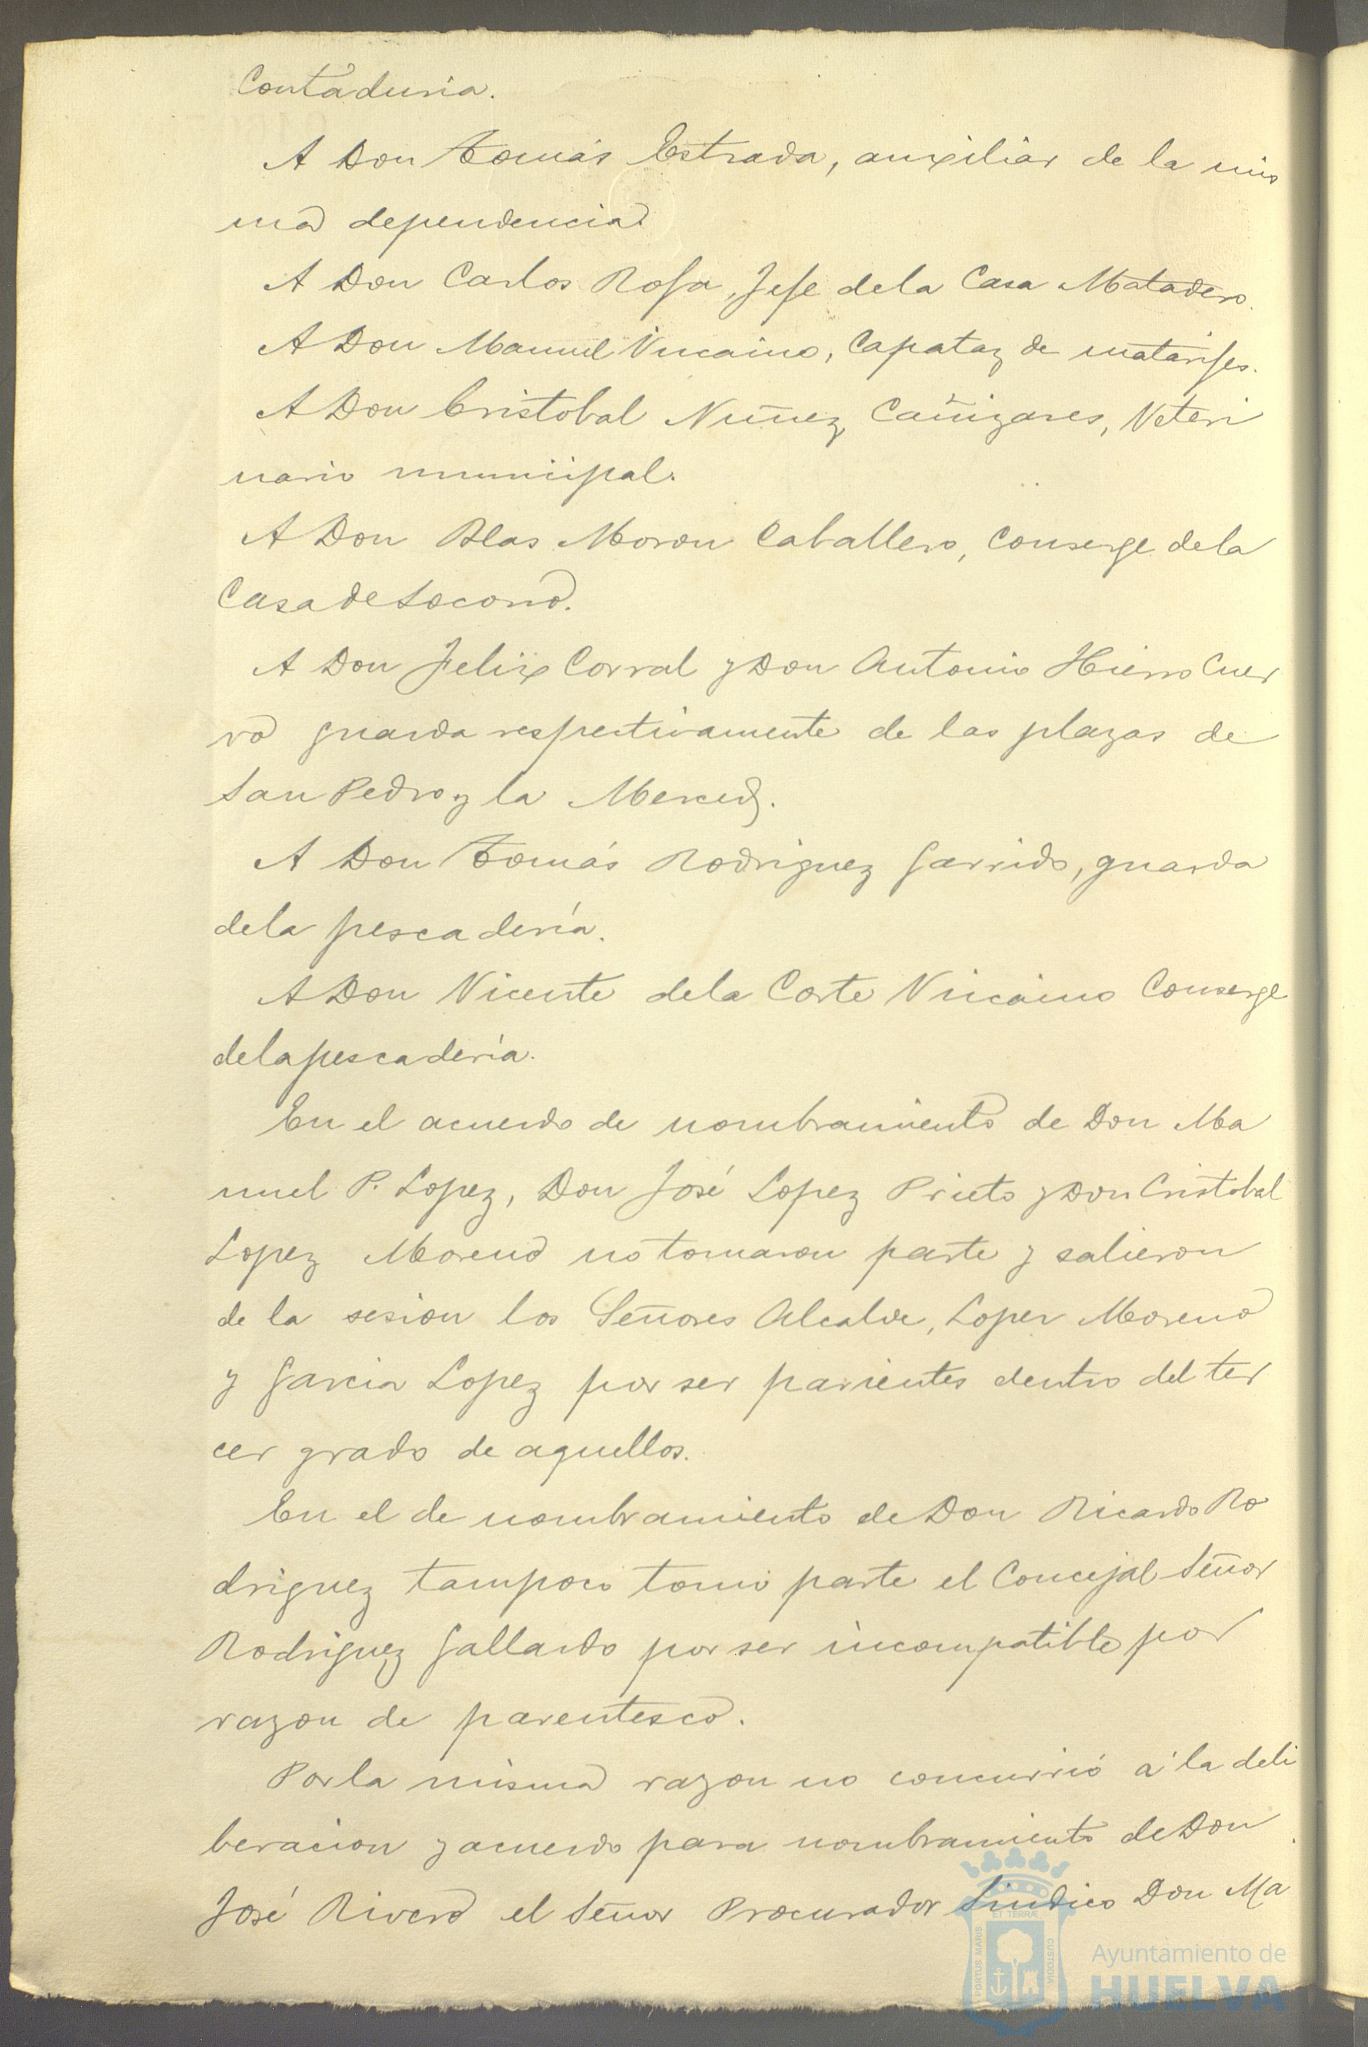 Contaduria.
A Don Tomás Estrada, auxiliar de la mis
ma dependencia
A Don Carlos Rosa, Jefe de la Casa Matadero.
A Don Manuel Vizcaino, Capataz de matarifes.
A Don Cristobal Nuñez Cañizares, Veteri
nario municipal.
A Don Blas Moron Caballero, Conserge de la
Casa de Socorro.
A Don Felix Corral y Don Antonio Hierro Cuer
vo guarda respectivamente de las plazas de
San Pedro y la Merced.
A Don Tomás Rodriguez Garrido, guarda
de la pescadería.
A Don Vicente de la Corte Vizcaino Conserge
de la pescadería.
En el acuerdo de nombramiento de Don Ma
nuel P. Lopez, Don José Lopez Prieto y Don Cristobal
Lopez Moreno no tomaron parte y salieron
de la sesion los Señores Alcalde, Lopez Moreno
y Garcia Lopez por ser parientes dentro del ter
cer grado de aquellos.
En el de nombramiento de Don Ricardo Ro
driguez tampoco tomó parte el Concejal Señor
Rodriguez Gallardo por ser incompatible por
razon de parentesco.
Por la misma razon no concurrió á la deli
beracion y acuerdo para nombramiento de Don
José Rivero el Señor Procurador Síndico Don Ma
Ayuntamiento de
HUELVA
PORTUS MARIS
ET TERRÆ
CUSTODIA